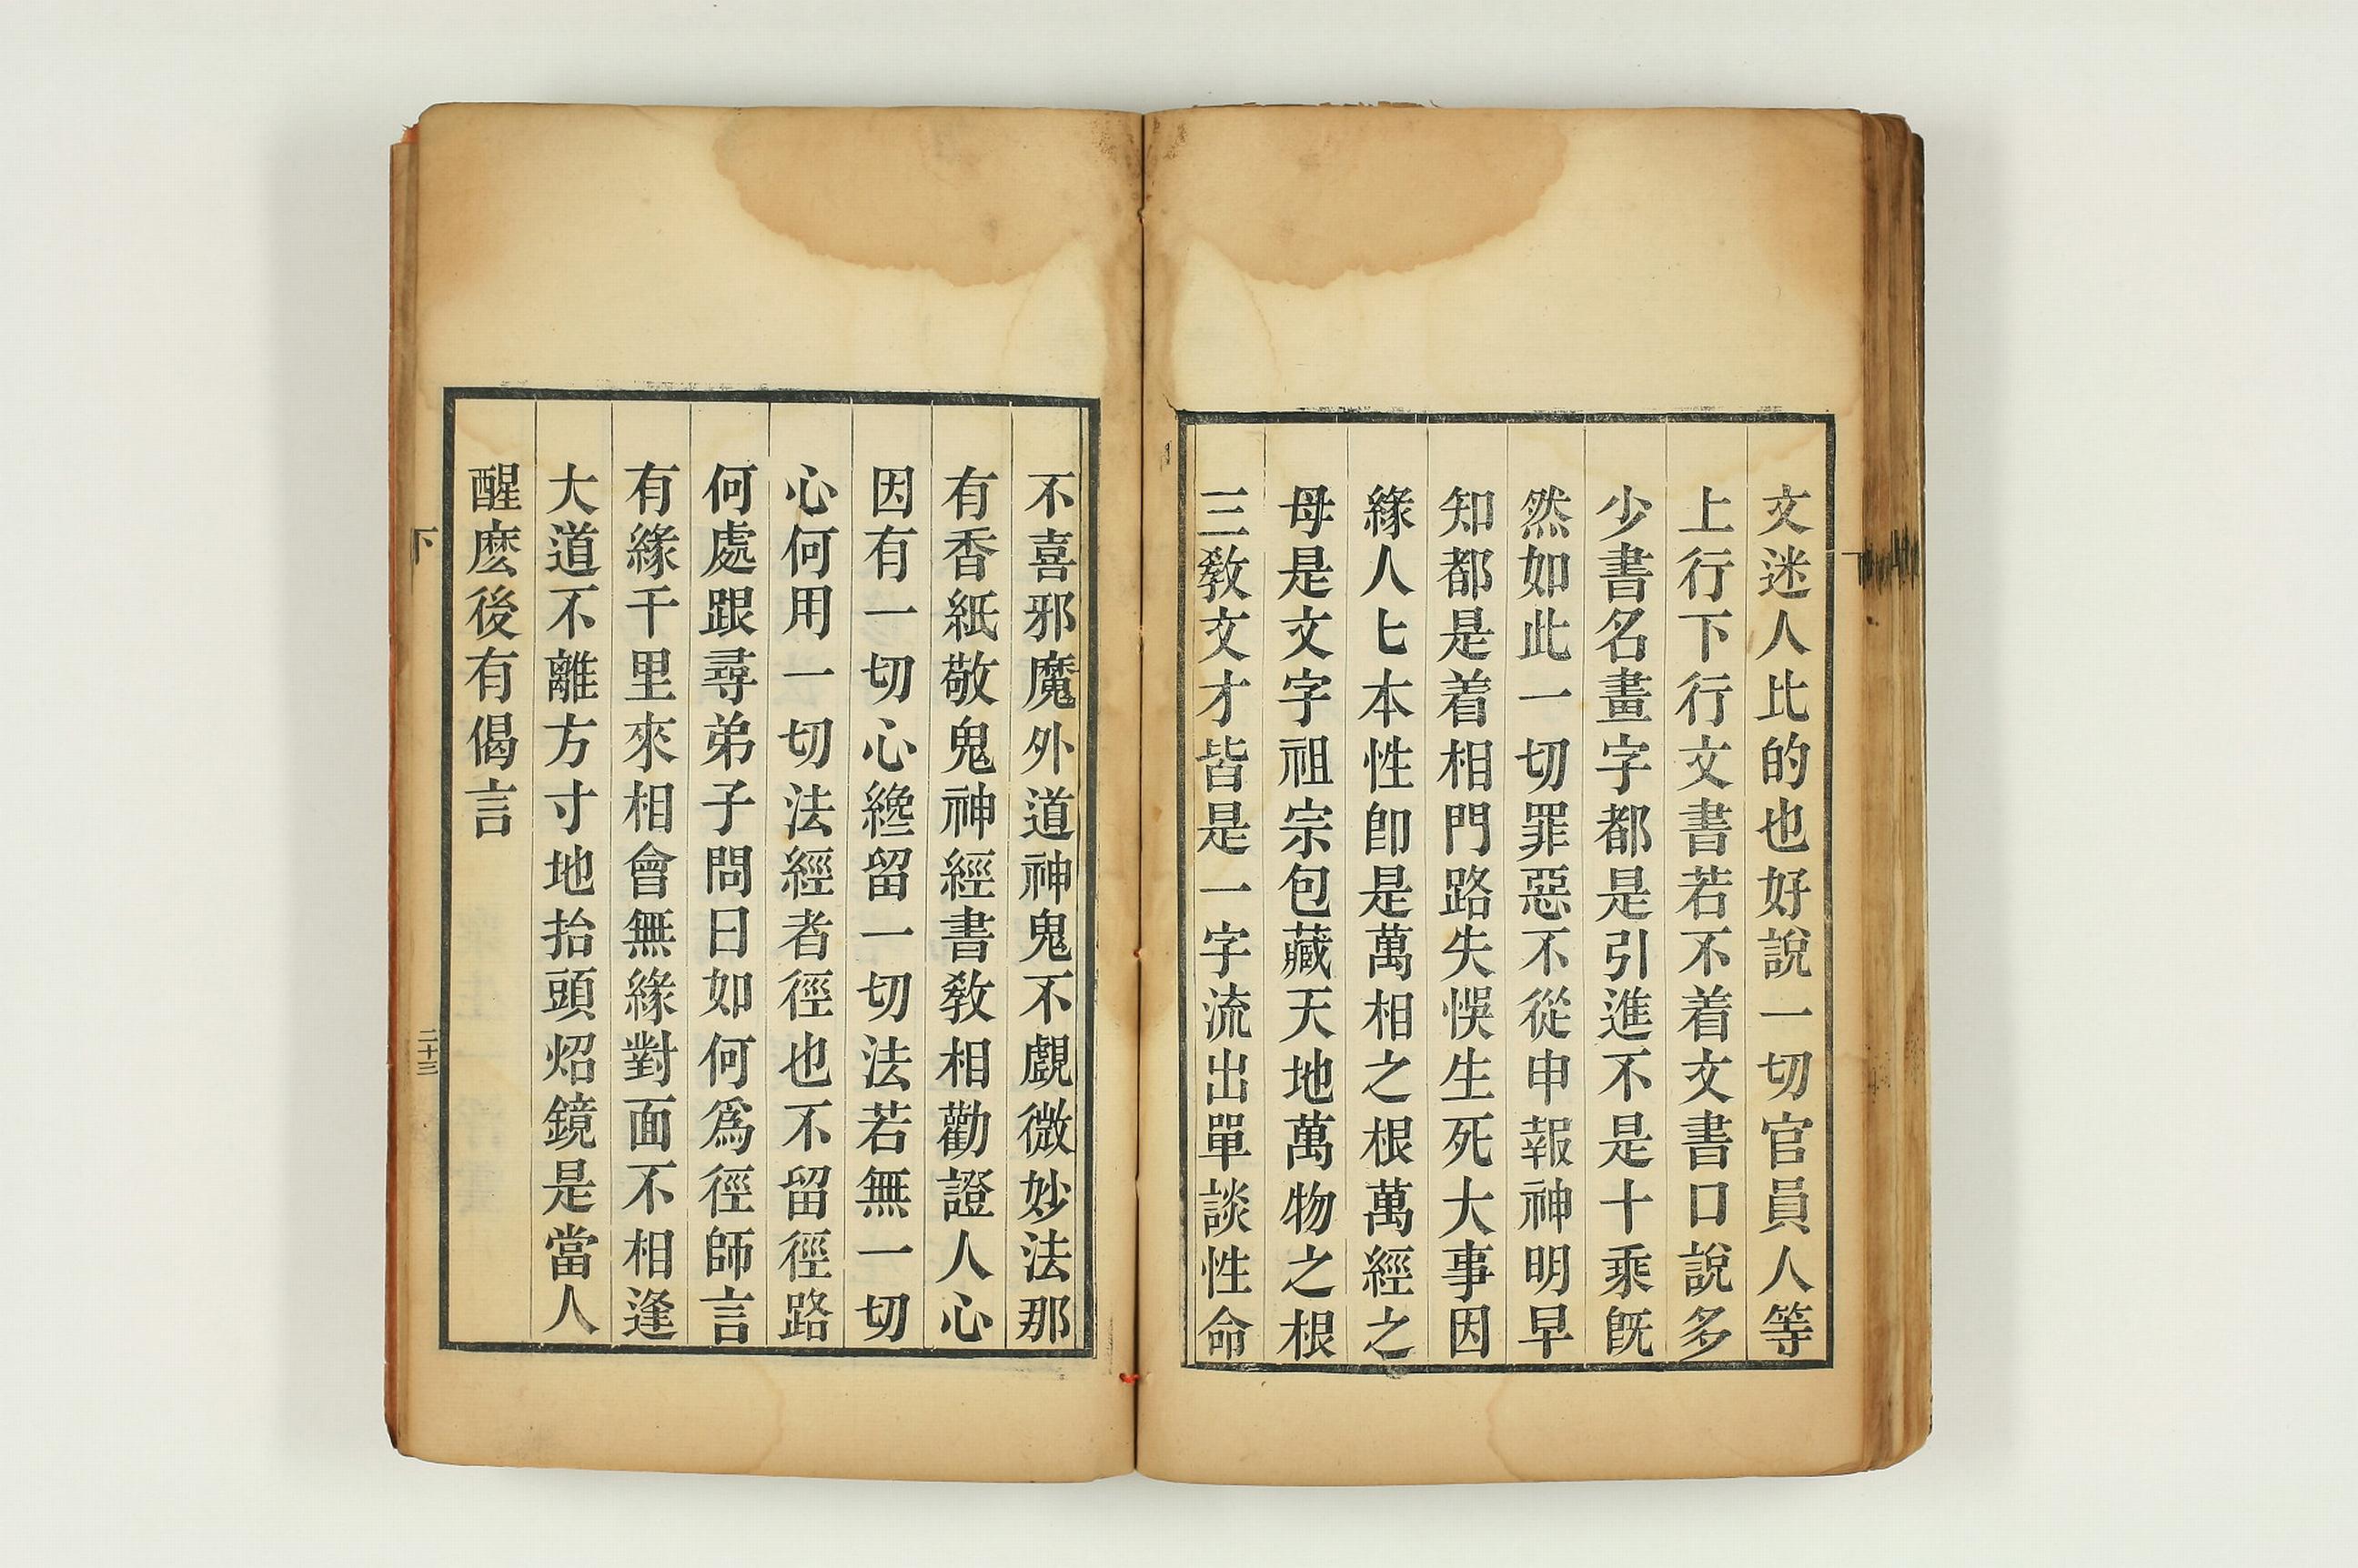 文迷人比的也好說一切官員人等
上行下行文書若不着文書口說多
少書名畫字都是引進不是十乘旣
然如此一切罪惡不從申報神明早
知都是着相門路失悞生死大事因
緣人匕本性卽是萬相之根萬經之
母是文字祖宗包藏天地萬物之根
三敎文才皆是一字流出單談性命
不喜邪魔外道神鬼不覷微妙法那
有香紙敬鬼神經書敎相勸證人心
因有一切心纔留一切法若無一切
心何用一切法經者徑也不留徑路
何處跟尋弟子問曰如何爲徑師言
有緣千里來相會無緣對面不相逢
大道不離方寸地抬頭炤鏡是當人
醒麽後有偈言
下
二十三